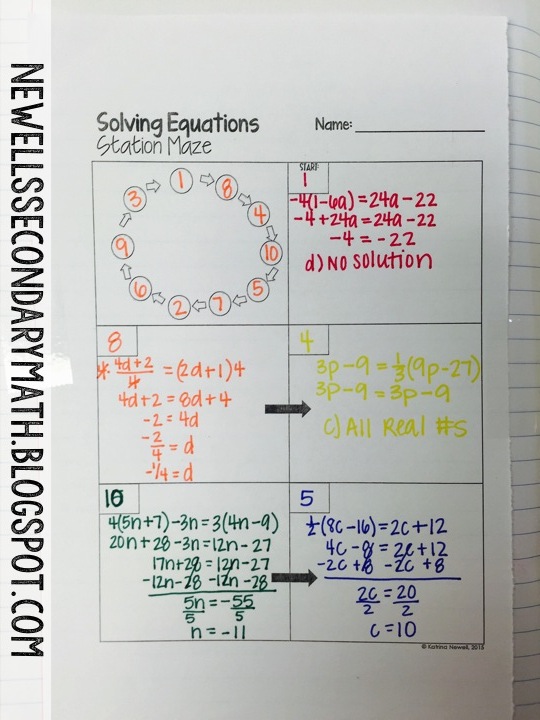 NEWELLSSECONDARYMATH.BLOGSPOT.COM
Solving Equations
Station Maze
Name:
1
8
4
10
5
7
2
6
9
3
START:
1
-4(1-6a) = 24a - 22
-4 + 24a = 24a - 22
-4 = -22
d) NO SOLUTION
8
4· (4d+2)/4 = (2d+1)4
4d+2 = 8d+4
-2 = 4d
-2/4 = d
-1/4 = d
4
3p-9 = 1/3(9p-27)
3p-9 = 3p-9
c) All Real #s
10
4(5n+7)-3n = 3(4n-9)
20n+28-3n = 12n-27
17n+28 = 12n-27
-12n-28 -12n-28
5n/5 = -55/5
n = -11
5
1/2(8c-16) = 2c+12
4c-8 = 2c+12
-2c +8 -2c +8
2c/2 = 20/2
c = 10
© Katrina Newell, 2015